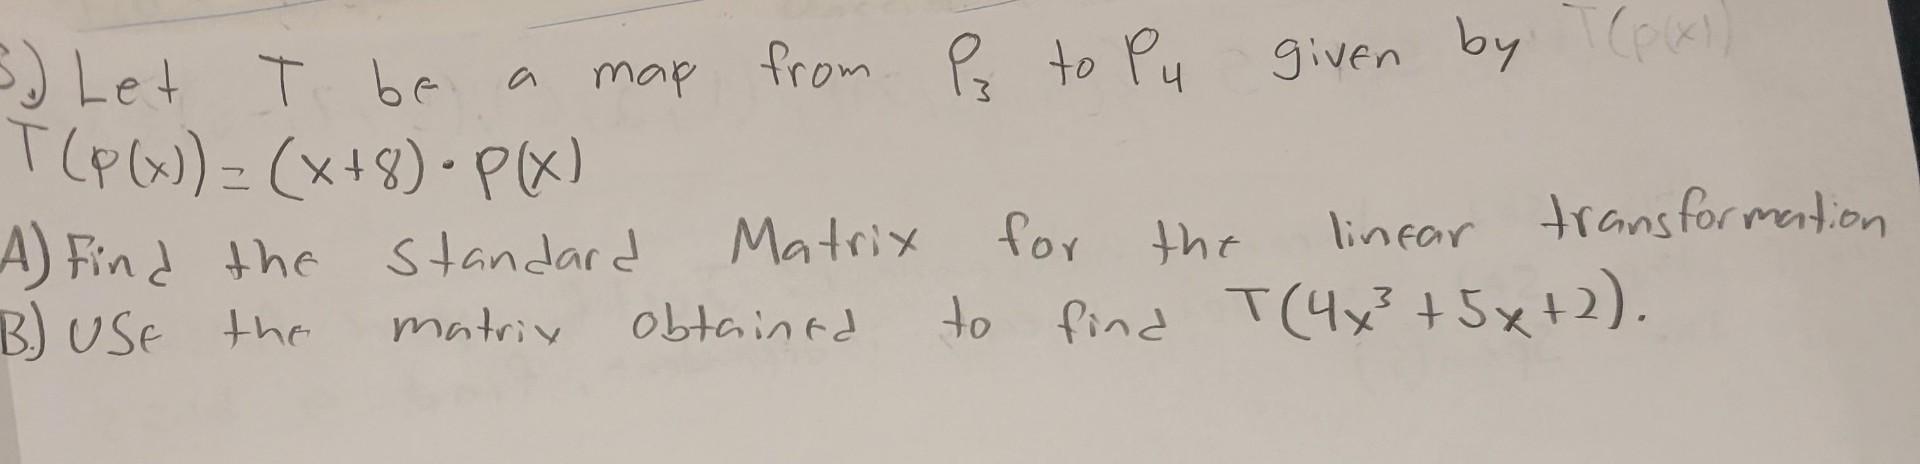 3.) Let T be a map from P₃ to P₄ given by T(p(x))
T(p(x)) = (x+8)·p(x)
A) Find the standard Matrix for the linear transformation
B.) Use the matrix obtained to find T(4x³+5x+2).